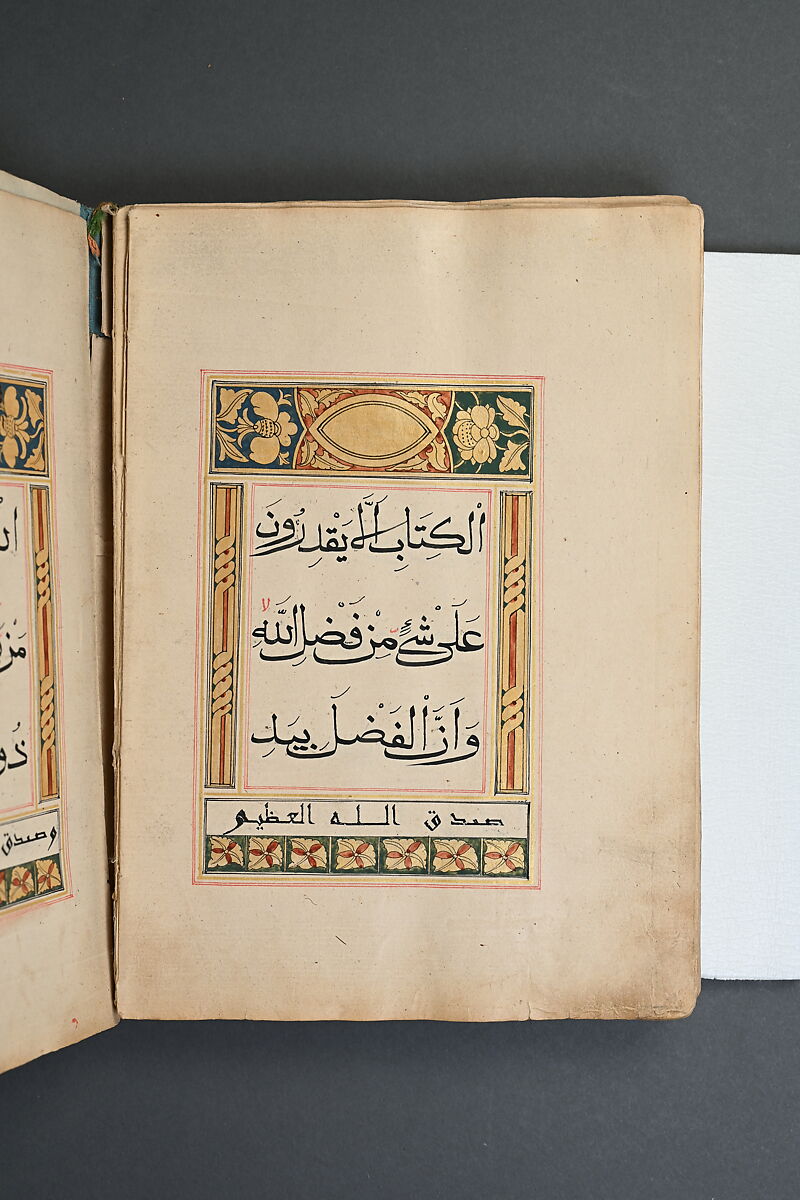 الْكِتَابِ اَلَّا يَقْدِرُونَ
عَلَى شَيْءٍ مِنْ فَضْلِ اللَّهِ لا
وَاَنَّ الْفَضْلَ بِيَدِ
صدق الله العظيم
وصدق